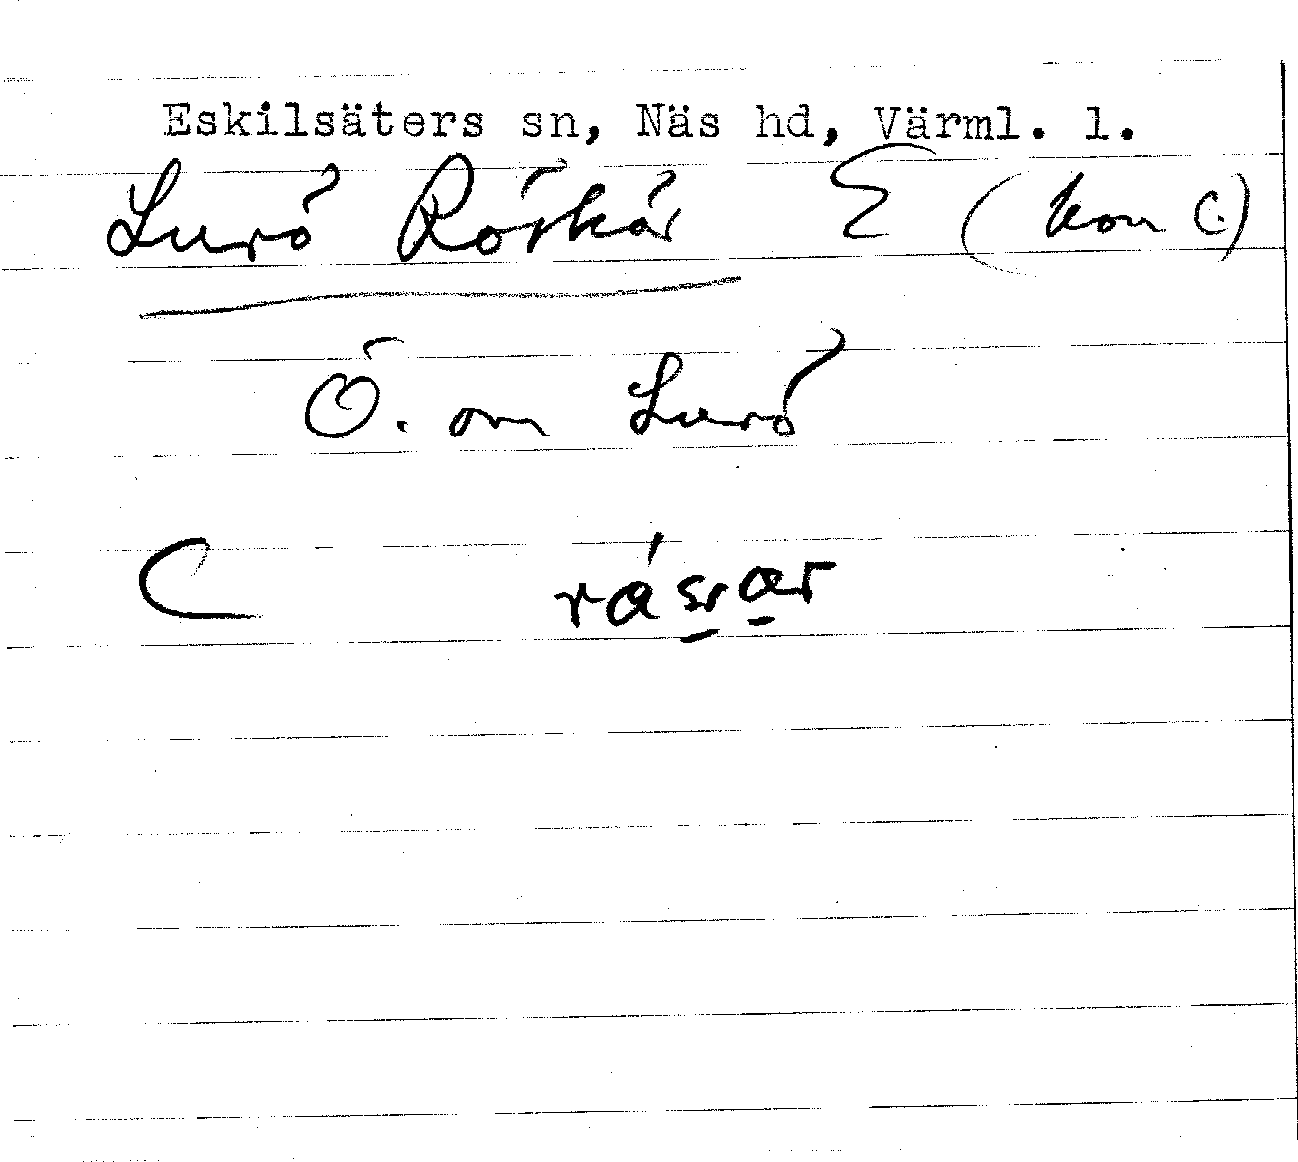 Eskilsäters sn, Näs hd, Värml. l.
Lurö Röskär E (kon C.)
Ö. om Lurö
C